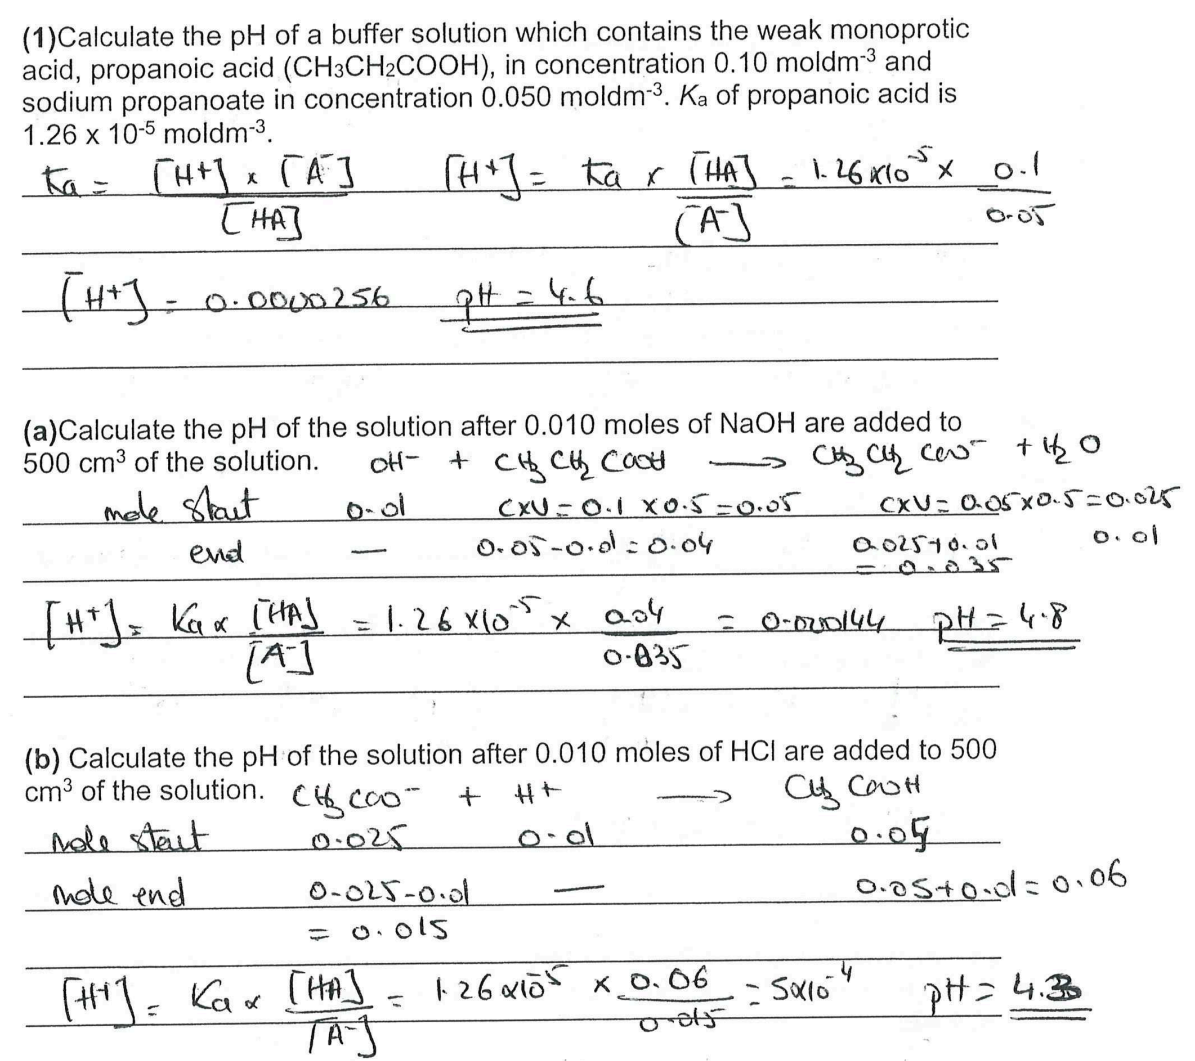 (1)Calculate the pH of a buffer solution which contains the weak monoprotic
acid, propanoic acid (CH3CH2COOH), in concentration 0.10 moldm-3 and
sodium propanoate in concentration 0.050 moldm-3. Ka of propanoic acid is
1.26 x 10-5 moldm-3.
Ka = [H+] x [A-] / [HA]    [H+] = Ka x [HA] / [A-] = 1.26x10^-5 x 0.1 / 0.05
[H+] = 0.0000256    pH = 4.6
(a)Calculate the pH of the solution after 0.010 moles of NaOH are added to
500 cm3 of the solution.    OH- + CH3 CH2 COOH → CH3 CH2 COO- + H2O
mole start    0.01    CxV = 0.1 x 0.5 = 0.05    CxV = 0.05x0.5 = 0.025
end    —    0.05-0.01 = 0.04    0.025+0.01    0.01
= 0.035
[H+] = Ka x [HA] / [A-] = 1.26 x10^-5 x 0.04 / 0.035 = 0.0000144    pH = 4.8
(b) Calculate the pH of the solution after 0.010 moles of HCl are added to 500
cm3 of the solution.    CH3 COO- + H+ → CH3 COOH
Mole start    0.025    0.01    0.05
Mole end    0.025-0.01    —    0.05+0.01 = 0.06
= 0.015
[H+] = Ka x [HA] / [A-] = 1.26 x10^-5 x 0.06 / 0.015 = 5x10^-4    pH = 4.3